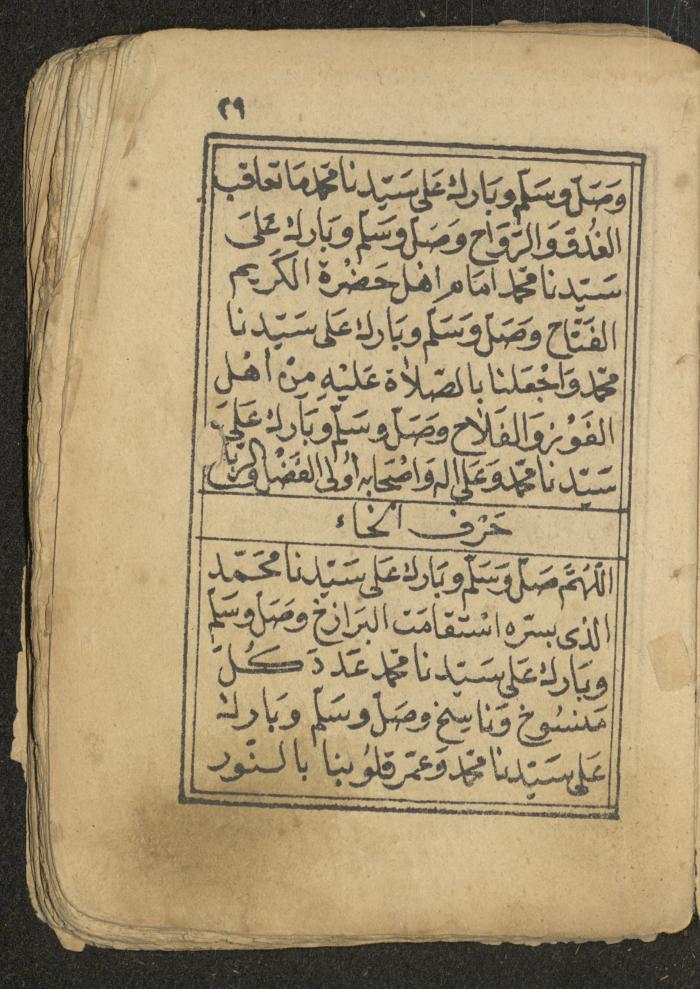 ٢٩
وَصَلِّ وَسَلِّمْ وَبَارِكْ عَلَى سَيِّدِنَا مُحَمَّدٍ مَا تَعَاقَبَ
الغُدُوّ وَالرَّوَاحِ وَصَلِّ وَسَلِّمْ وَبَارِكْ عَلَى
سَيِّدِنَا مُحَمَّدٍ اِمَامِ اَهْلِ حَضْرَةِ الكَرِيمِ
الفَتَّاحِ وَصَلِّ وَسَلِّمْ وَبَارِكْ عَلَى سَيِّدِنَا
مُحَمَّدٍ وَاجْعَلْنَا بِالصَّلَاةِ عَلَيْهِ مِنْ اَهْلِ
الفَوْزِ وَالفَلَاحِ وَصَلِّ وَسَلِّمْ وَبَارِكْ عَلَى
سَيِّدِنَا مُحَمَّدٍ وَعَلَى اٰلِهِ وَاَصْحَابِهِ اُولِى الفَضْلِ
حَرْفُ الخَاءِ
اللّٰهُمَّ صَلِّ وَسَلِّمْ وَبَارِكْ عَلَى سَيِّدِنَا مُحَمَّدٍ
الذى بِسِرِّهِ اسْتَقَامَتِ البَرَازِخُ وَصَلِّ وَسَلِّمْ
وَبَارِكْ عَلَى سَيِّدِنَا مُحَمَّدٍ عَدَدَ كُلِّ
مَنْسُوخٍ وَنَاسِخٍ وَصَلِّ وَسَلِّمْ وَبَارِكْ
عَلَى سَيِّدِنَا مُحَمَّدٍ وَعَمِّرْ قُلُوبَنَا بِالنُّورِ